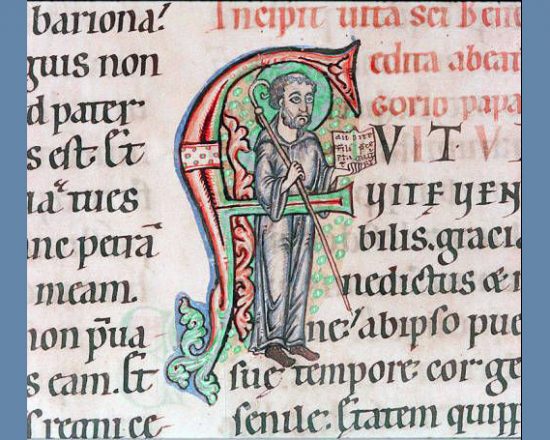 bariona
guis non
d pater
s est. Et
ia tues
ane petrā
meam.
non p̄ua
s eam. Et
s regni ce
Incipit uita sci Bene
edita abeat
gorio papa
VIT V
VITE VEN
bilis. gracia
nedictus & i
ne. ab ipso pue
suę tempore cor ge
senile. Etatem quipp